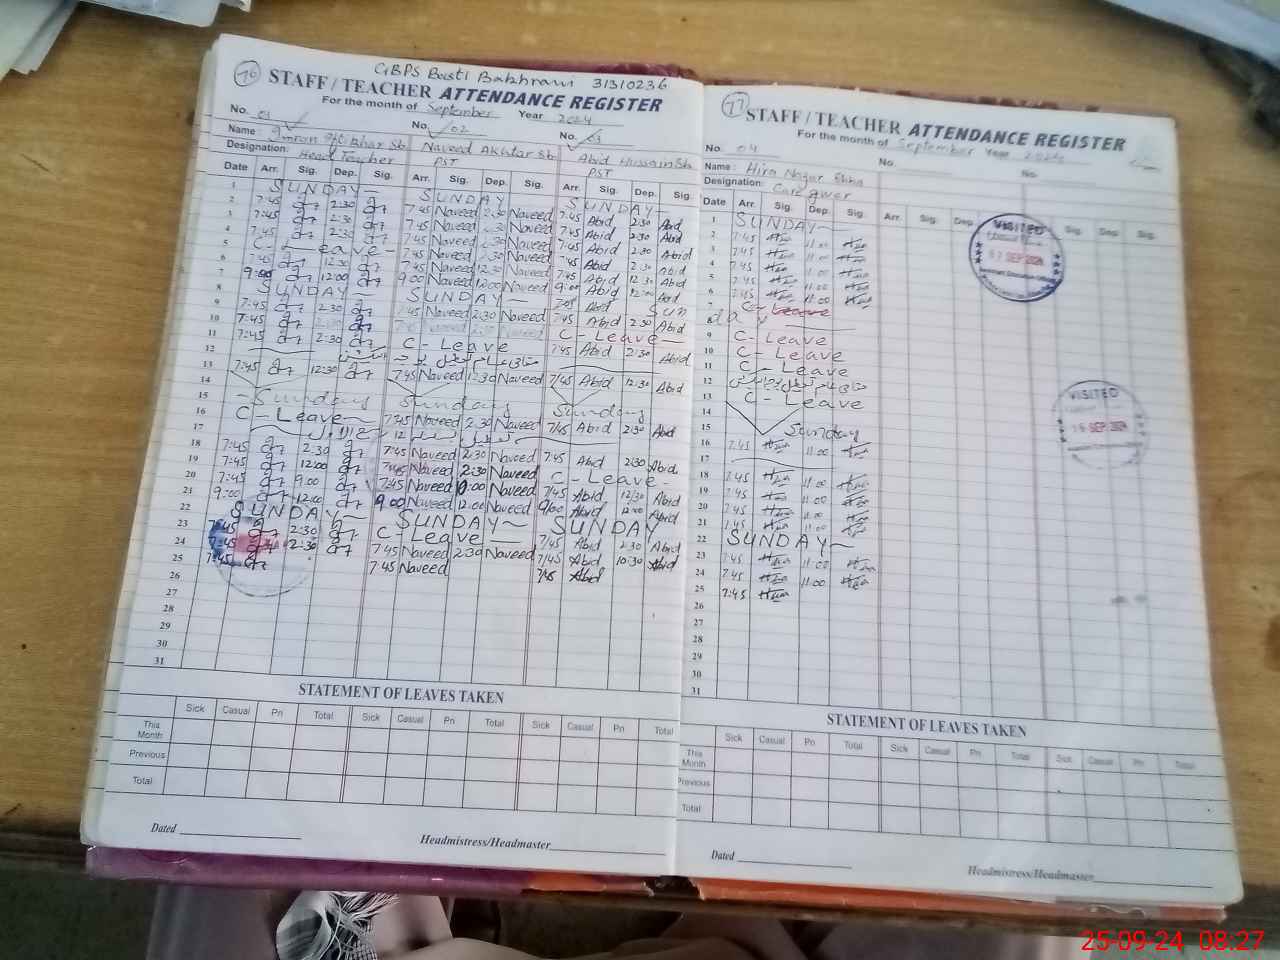 70
GBPS Basti Bakhrani 31310236
STAFF / TEACHER ATTENDANCE REGISTER
For the month of September Year 2024
No. 01 No. 02 No. 03
Name : Naveed Akhtar Sb Abid Hussain Sb
Designation: Head Teacher PST PST
Date Arr. Sig. Dep. Sig. Arr. Sig. Dep. Sig. Arr. Sig. Dep. Sig.
1 SUNDAY SUNDAY SUNDAY
2 7:45 2:30 7:45 Naveed 2:30 Naveed 7:45 Abid 2:30 Abid
3 7:45 2:30 7:45 Naveed 2:30 Naveed 7:45 Abid 2:30 Abid
4 7:45 2:30 7:45 Naveed 2:30 Naveed 7:45 Abid 2:30 Abid
5 C-Leave 7:45 Naveed 2:30 Naveed 7:45 Abid 2:30 Abid
6 7:45 12:30 7:45 Naveed 12:30 Naveed 7:45 Abid 12:30 Abid
7 9:00 12:00 9:00 Naveed 12:00 Naveed 9:00 Abid 12:00 Abid
8 SUNDAY SUNDAY Sun
9 7:45 2:30 7:45 Naveed 2:30 Naveed 7:45 Abid 2:30 Abid
10 7:45 2:30 7:45 Naveed 2:30 Naveed C-Leave
11 7:45 2:30 C-Leave 7:45 Abid 2:30 Abid
12
13 7:45 12:30 7:45 Naveed 12:30 Naveed 7:45 Abid 12:30 Abid
14
15 Sunday Sunday Sunday
16 C-Leave 7:45 Naveed 2:30 Naveed 7:45 Abid 2:30 Abid
17
18 7:45 2:30 7:45 Naveed 2:30 Naveed 7:45 Abid 2:30 Abid
19 7:45 12:00 7:45 Naveed 2:30 Naveed C-Leave
20 7:45 9:00 7:45 Naveed Naveed 7:45 Abid 12:30 Abid
21 9:00 12:00 9:00 Naveed 12:00 Naveed 9:00 Abid 12:00 Abid
22 SUNDAY SUNDAY SUNDAY
23 7:45 2:30 C-Leave 7:45 Abid 2:30 Abid
24 7:45 2:30 7:45 Naveed 2:30 Naveed 7:45 Abid 10:30 Abid
25 7:45 7:45 Naveed 7:45 Abid
26
27
28
29
30
31
STATEMENT OF LEAVES TAKEN
Sick Casual Pn Total Sick Casual Pn Total Sick Casual Pn Total
This Month
Previous
Total
Dated Headmistress/Headmaster
71
STAFF / TEACHER ATTENDANCE REGISTER
For the month of September Year 2024
No. 04 No. No.
Name : Hira
Designation: Care giver
Date Arr. Sig. Dep. Sig. Arr. Sig. Dep. Sig. Dep. Sig.
1 SUNDAY
2 7:45 Hira 11:00 Hira
3 7:45 Hira 11:00 Hira
4 7:45 Hira 11:00 Hira
5 7:45 Hira 11:00 Hira
6 7:45 Hira 11:00 Hira
7 C-Leave
8 day
9 C-Leave
10 C-Leave
11 C-Leave
12
13 C-Leave
14
15 Sunday
16 7:45 Hira 11:00 Hira
17
18 7:45 Hira 11:00 Hira
19 7:45 Hira 11:00 Hira
20 7:45 Hira 11:00 Hira
21 7:45 Hira 11:00 Hira
22 SUNDAY
23 7:45 Hira 11:00 Hira
24 7:45 Hira 11:00 Hira
25 7:45 Hira
26
27
28
29
30
31
VISITED
SEP 2024
VISITED
SEP 2024
STATEMENT OF LEAVES TAKEN
Sick Casual Pn Total Sick Casual Pn Total Sick Casual Pn Total
This Month
Previous
Total
Dated Headmistress/Headmaster
25-09-24 08:27